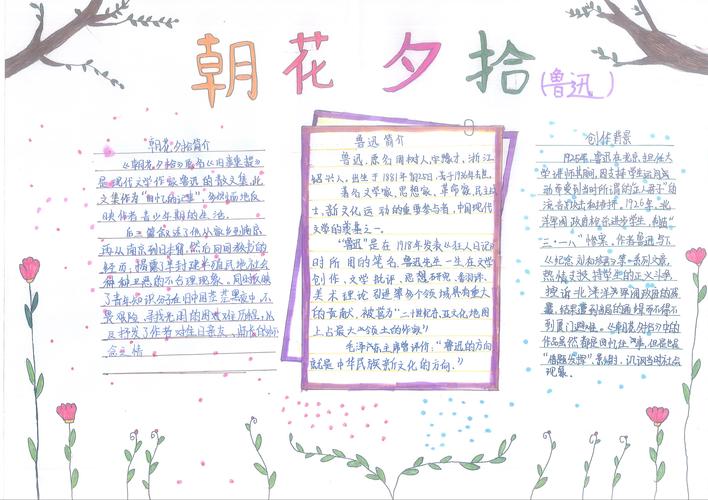 朝花夕拾(鲁迅)
朝花夕拾简介
《朝花夕拾》原名《旧事重提》
是现代文学作家鲁迅的散文集,此
文集作为“回忆的记事”,多侧面地反
映作者青少年时期的生活。
后三篇叙述了他从家乡到南京
再从南京到日本留,然后回国教书的
经历,揭露了半封建半殖民地社会
种种丑恶的不合理现象,同时反映了
青年知识分子在旧中国茫茫黑夜中,不
畏艰险,寻找光明的困难历程,以
及抒发了作者对往日亲友、师长的怀
念之情
鲁迅简介
鲁迅,原名周树人,字豫才,浙江
绍兴人,出生于1881年9月25日,卒于1936年
著名文学家,思想家,革命家,民主战
士,新文化运动的重要参与者,中国现代
文学的奠基之一。
“鲁迅”是在1918年发表《狂人日记》
时所用的笔名,鲁迅先生一生在文学
创作,文学批评,思想研究,
美术理论引进等多个领域具有重大
的贡献,被蓄为“二十世纪东亚文化地图
上占最大领土的作家”
毛泽东主席曾评价:“鲁迅的方向
就是中华民族新文化的方向。”
创作背景
1925年,鲁迅在北京担任大
学讲师期间,因支持学生运动
而受到当时所谓的“正人君子”的
流言攻击和排挤。1926年,北
洋军阀政府枪杀进步学生,制造“
三·一八”惨案。作者鲁迅写下
《纪念刘和珍君》等一系列文章,
热情支持学生的正义斗争,
控诉北洋军阀政府的残
暴,结果遭到当局的通缉而不得不
到厦门避难。《朝花夕拾》中的
作品虽然都是回忆往事,但是也是
“借题发挥”影射,讥讽当时社会
现象。